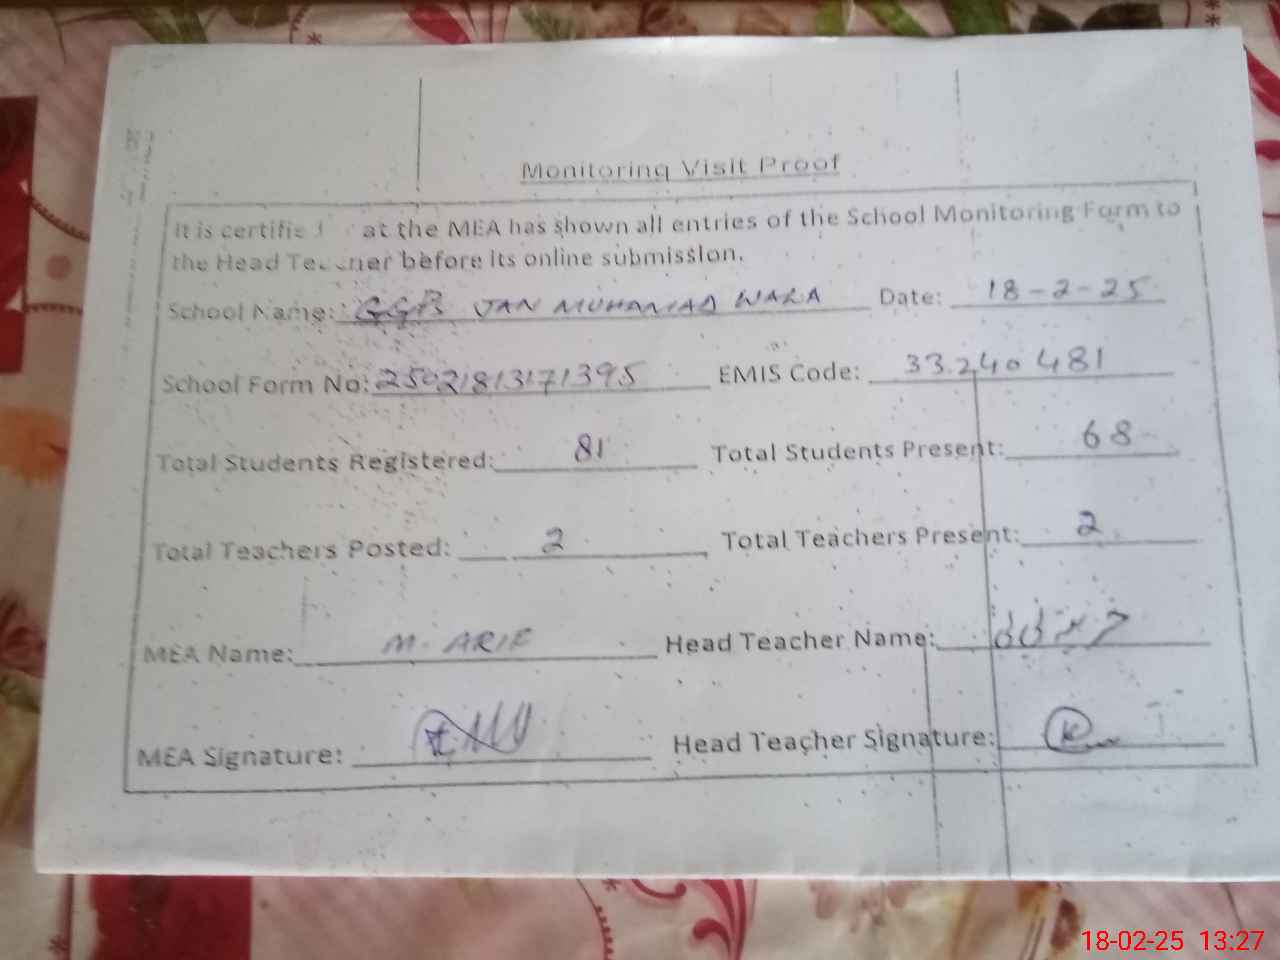 Monitoring Visit Proof
It is certified at the MEA has shown all entries of the School Monitoring Form to
the Head Teacher before its online submission.
School Name: GGPS JAN MUHAMMAD WALA Date: 18-2-25
School Form No: 25021813171395 EMIS Code: 33240481
Total Students Registered: 81 Total Students Present: 68
Total Teachers Posted: 2 Total Teachers Present: 2
MEA Name: M. ARIF Head Teacher Name:
MEA Signature: Head Teacher Signature:
18-02-25 13:27